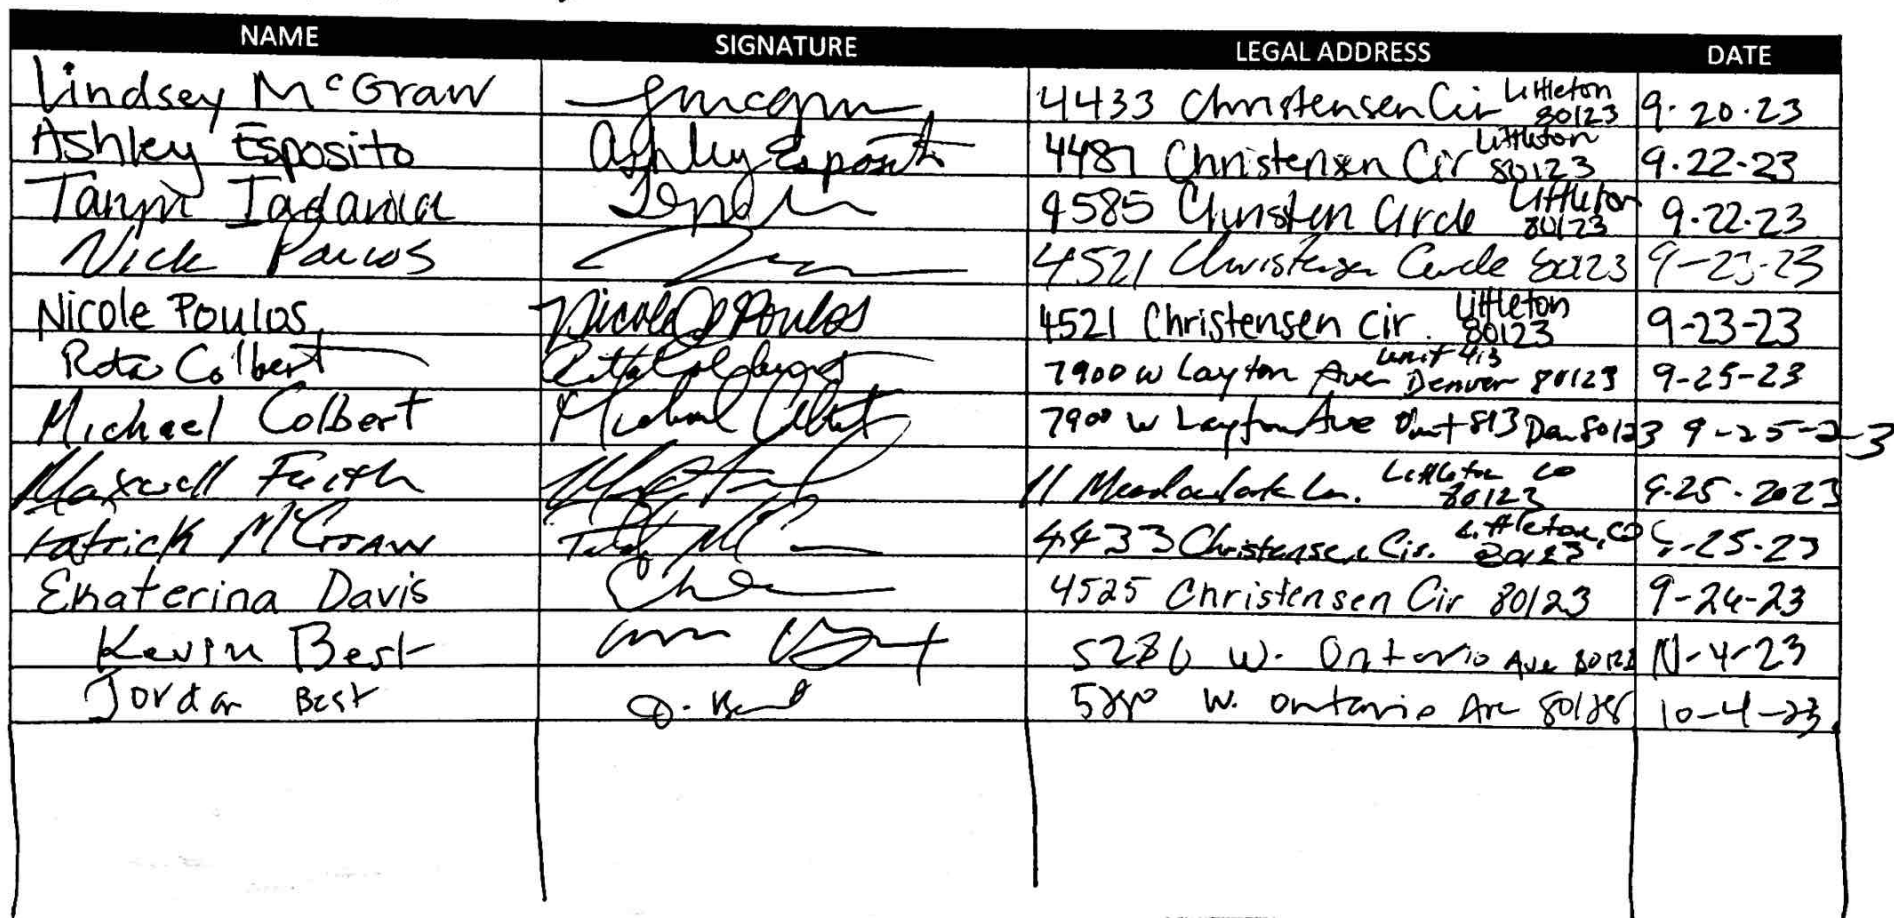 NAME SIGNATURE LEGAL ADDRESS DATE
Lindsey McGraw 4433 Christensen Cir Littleton 80123 9.20.23
Ashley Esposito Ashley Esposito 4487 Christensen Cir Littleton 80123 9.22.23
4585 Circle Littleton 80123 9.22.23
Nick 4521 Christensen Circle 80123 23
Nicole Poulos Nicole Poulos 4521 Christensen cir. Littleton 80123 9-23-23
Colbert 7900 W Layton Ave unit 413 Denver 80123 9-25-23
Michael Colbert Michael Colbert 7900 W Layton Ave Unit 813 Den 80123 9-25-23
Maxwell 11 Meadowlark Ln. Littleton CO 80123 9.25.2023
Patrick McGraw 4433 Christensen Cir. Littleton, CO 80123 9-25-23
Ekaterina Davis 4525 Christensen Cir 80123 9-24-23
Kevin Best W. Ontario Ave 4-23
Jordan Best J. Best W. Ontario Ave 80128 10-4-23